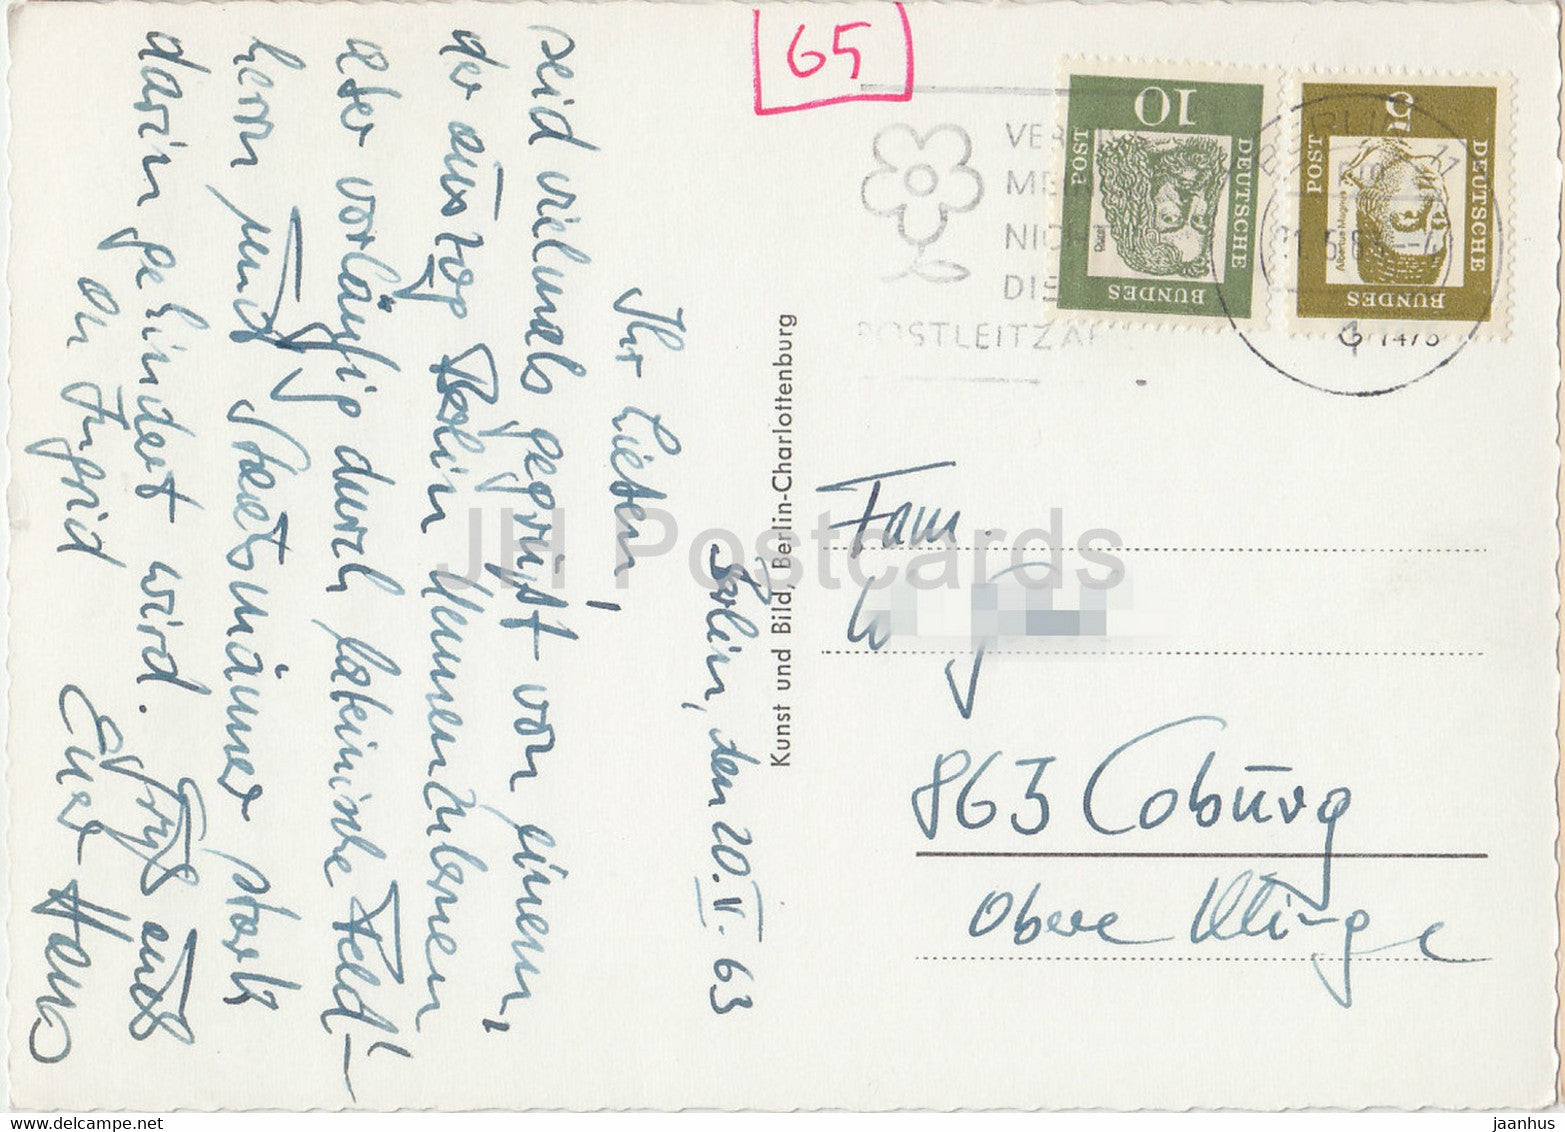 Berlin, den 20. V. 63
Ihr Lieben,
seid vielmals gegrüßt von einem,
der auszog Berlin kennenzulernen
aber vorläufig durch lateinische Feld-
herrn und Staatsmänner stark
daran gehindert wird. Grüßt auch
die Ingrid
Euer Hans
Kunst und Bild, Berlin-Charlottenburg
65
VER
ME
NICH
DIE
POSTLEITZAH
10
DEUTSCHE
BUNDES
POST
5
DEUTSCHE
BUNDES
POST
Albertus Magnus
BERLIN
Fam.
W
863 Coburg
Obere Klinge
JH Postcards
www.delcampe.net
jaanhus